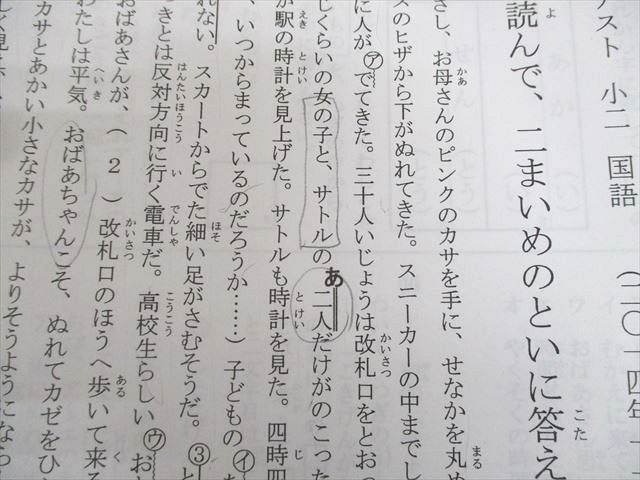 テスト 小二 国語
(二〇一四年十
読んで、二まいめのといに答え
さし、お母さんのピンクのカサを手に、せなかを丸め
スのヒザから下がぬれてきた。スニーカーの中までし
に人が㋐でてきた。三十人いじょうは改札口をとおっ
じくらいの女の子と、サトルのあ二人だけがのこった
が駅の時計を見上げた。サトルも時計を見た。四時四
、いつからまっているのだろうか……）子どもの㋑
れない。スカートからでた細い足がさむそうだ。③と
きとは反対方向に行く電車だ。高校生らしい㋒お
おばあさんが、（ 2 ）改札口のほうへ歩いて来る
わたしは平気。おばあちゃんこそ、ぬれてカゼをひ
カサとあかい小さなカサが、よりそうようになら